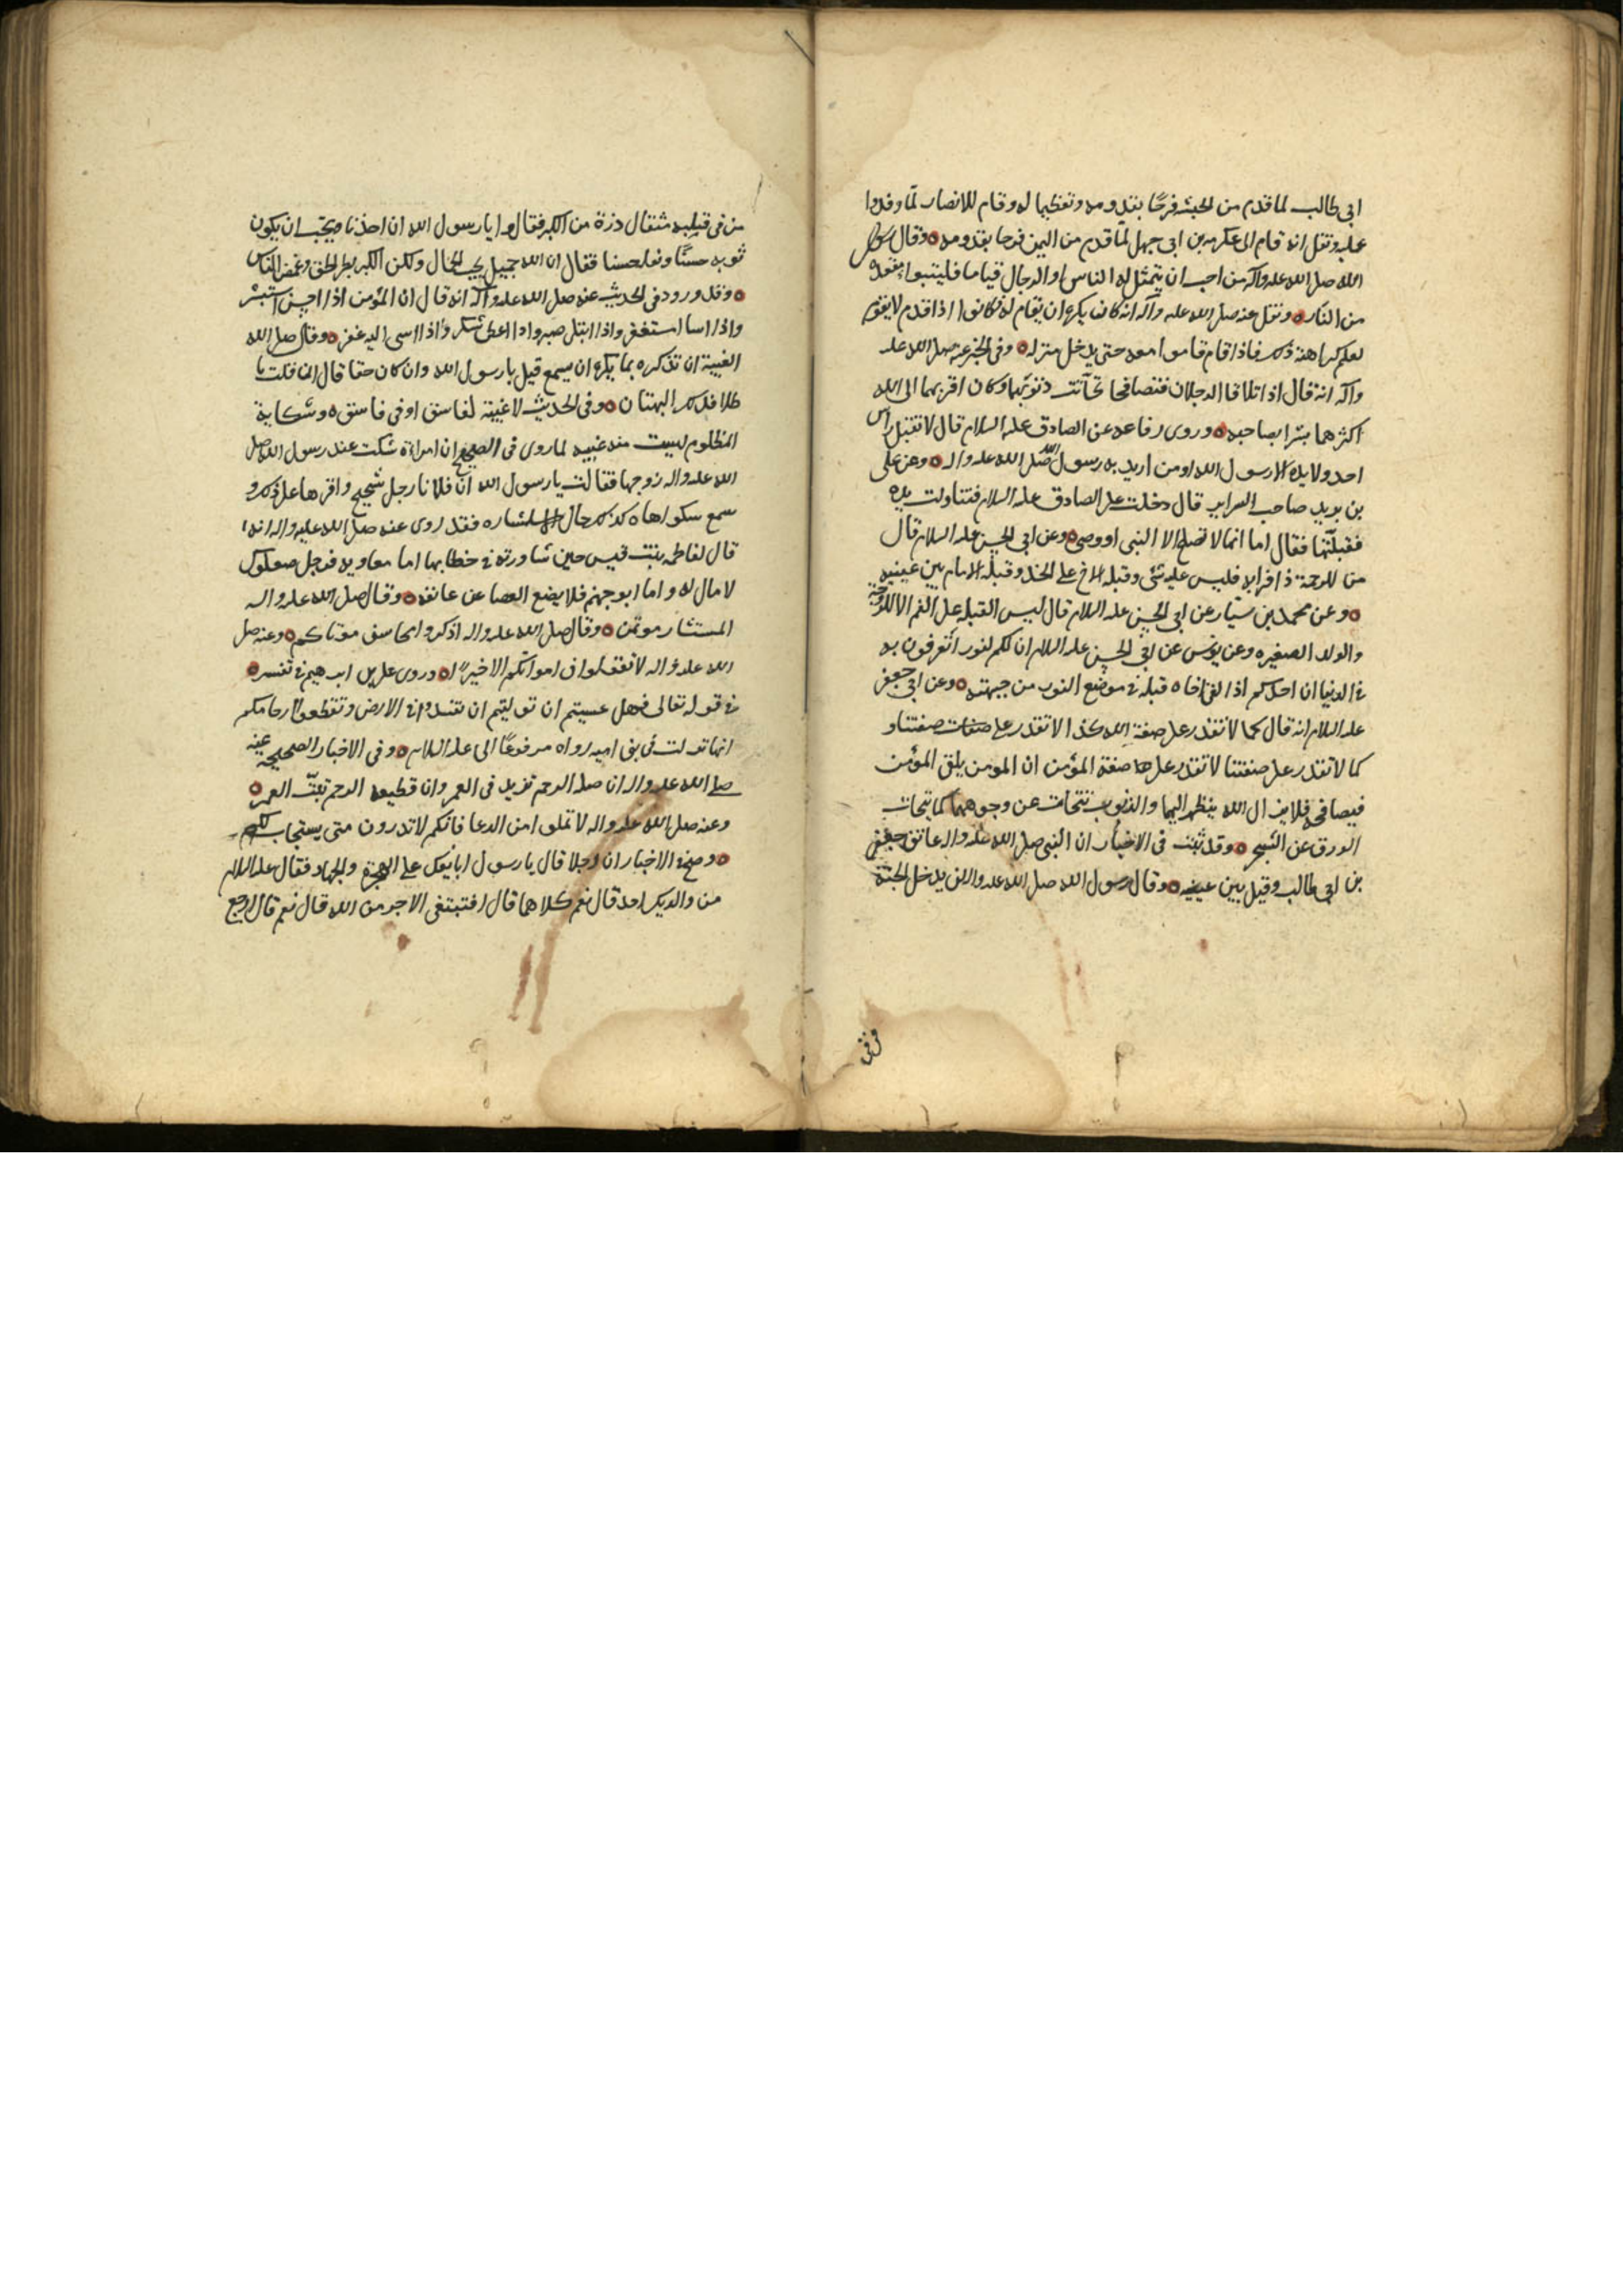 ابى طالب لما قدم من الحبشه فرحًا بقدومه وتعظيما له وقام للانصار لمّا وفدوا
عليه ونقل انه قام الى عكرمه بن ابى جهل لمّا قدم من اليمن فرحا بقدومه وقال رسول
الله صلى الله عليه واله من احب ان يتمثل له الناس او الرجال قياما فليتبوا مقعده
من النار ونقل عنه صلى الله عليه وآله انه كان يكره ان يقام له فكانوا اذا قدم لا يقوموا
لعلمهم كراهته ذلك فاذا قام قاموا معه حتى يدخل منزله وفى الخبر عنه صلى الله عليه
وآله انه قال اذا تلاقا الرجلان فتصافحا تحاتت ذنوبهما وكان اقربهما الى الله
اكثرهما بشرا بصاحبه وروى رفاعه عن الصادق عليه السلام قال لا تقبل راس
احد ولا يده الا رسول الله او من اريد به رسول الله صلى الله عليه واله وعن على
بن يزيد صاحب السابرى قال دخلت على الصادق عليه السلام فتناولت يده
فقبلتها فقال اما انها لا تصلح الا النبى او وصى وعن ابى الحسن عليه السلام قال
من للرحمة ذا قرابه فليس عليه شئ وقبلة الاخ على الخد وقبلة الامام بين عينيه
وعن محمد بن سنان عن ابى الحسن عليه السلام قال ليس القبله على الفم الا للزوجة
والولد الصغيره وعن يونس عن ابى الحسن عليه السلام ان لكم لنورا تعرفون به
فى الدنيا ان احدكم اذا لقى اخاه قبله فى موضع النور من جبهته وعن ابى جعفر
عليه السلام انه قال كما لا تقدر على صفة الله كذا لا تقدر على صفات صفتنا و
كما لا تقدر على صفتنا لا تقدر على صفة المؤمن ان المومن يلقى المؤمن
فيصافحه فلا يزال الله ينظر اليهما والذنوب تتحات عن وجوههما كما يتحات
الورق عن الشجر وقد ثبت فى الاخبار ان النبى صلى الله عليه واله عانق جعفر
بن ابى طالب وقبل بين عينيه وقال رسول الله صلى الله عليه واله لن يدخل الجنة
من فى
من فى قلبه مثقال ذرة من الكبر فقالوا يا رسول الله ان احدنا يحب ان يكون
ثوبه حسنًا ونعله حسنا فقال ان الله جميل يحب الجمال ولكن الكبر بطر الحق وغمض الناس
وقد ورد فى الحديث عنه صلى الله عليه وآله انه قال ان المؤمن اذا احسن استبشر
واذا اسا استغفر واذا ابتلى صبر واذا اعطى شكر واذا اسى اليه غفر وقال صلى الله
الغيبة ان تذكره بما يكره ان يسمع قيل يا رسول الله وان كان حقا قال ان قلت با
طلا فذلك البهتان وفى الحديث لا غيبة لفاسق او فى فاسق وشكاية
المظلوم ليست منه غيبه لما روى فى الصحيح ان امراة شكت عند رسول الله صلى
الله عليه واله زوجها فقالت يا رسول الله ان فلانا رجل شحيح واقرها على ذلك و
سمع شكواها كذلك حال المشاره فقد روى عنه صلى الله عليه واله انه
قال لفاطمه بنت قيس حين شاورته فى خطابها اما معاويه فرجل صعلوك
لا مال له واما ابو جهم فلا يضع العصا عن عاتقه وقال صلى الله عليه واله
المستشار موتمن وقال صلى الله عليه واله اذكروا محاسن موتاكم وعنه صلى
الله عليه واله لا تقولوا فى امواتكم الا خيرًا وروى على بن ابرهيم فى تفسره
فى قوله تعالى فهل عسيتم ان توليتم ان تفسدوا فى الارض وتقطعوا ارحامكم
انها نزلت فى بنى اميه رواه مرفوعًا الى على عليه السلام وفى الاخبار الصحيحه عنه
صلى الله عليه واله ان صلة الرحم تزيد فى العمر وان قطيعه الرحم تبتّ العمر
وعنه صلى الله عليه واله لا تملوا من الدعا فانكم لا تدرون متى يستجاب لكم
وصح فى الاخبار ان رجلا قال يا رسول ابايعك على الهجرة والجهاد فقال عليه السلام
من والديك احد قال نعم كلاهما قال افتبتغى الاجر من الله قال نعم قال ارجع